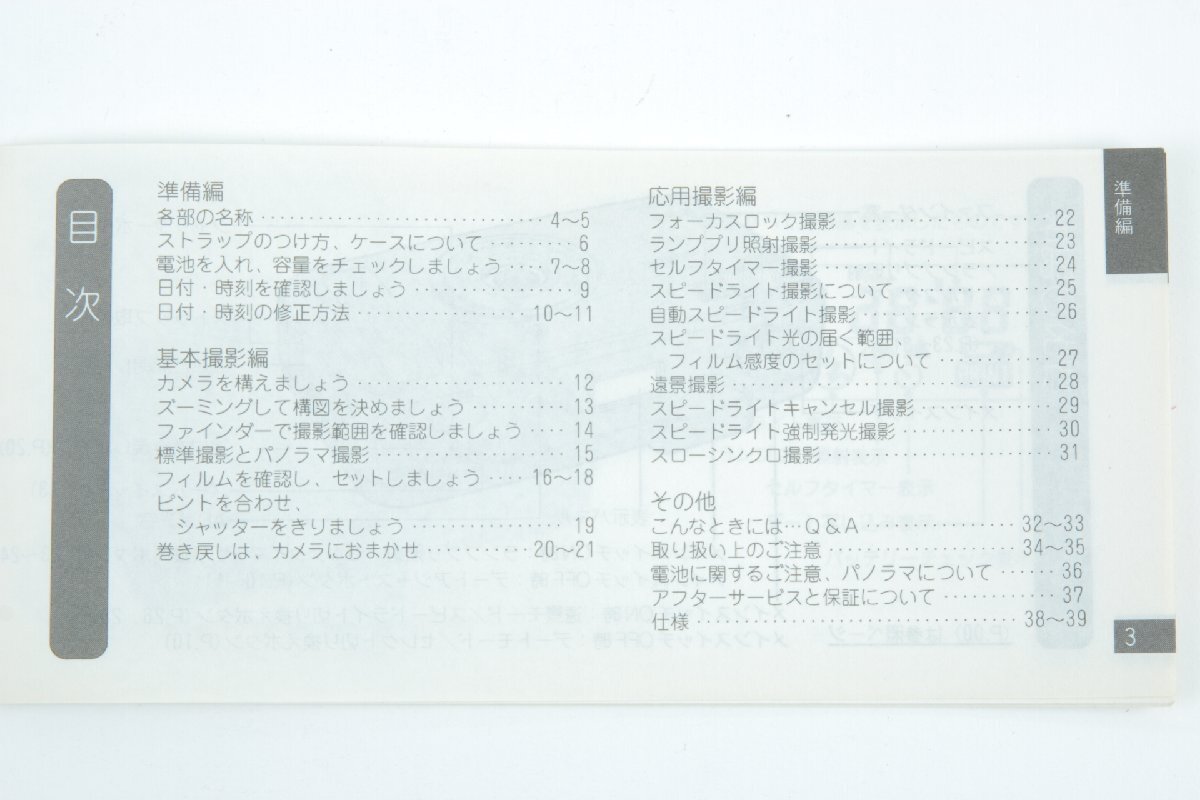 目次
準備編
各部の名称 ・・・・・・・・・・・・・・・・ 4〜5
ストラップのつけ方、ケースについて ・・・・・・・・ 6
電池を入れ、容量をチェックしましょう ・・・・ 7〜8
日付・時刻を確認しましょう ・・・・・・・・・・・・ 9
日付・時刻の修正方法 ・・・・・・・・・・・・ 10〜11
基本撮影編
カメラを構えましょう ・・・・・・・・・・・・・・ 12
ズーミングして構図を決めましょう ・・・・・・・・ 13
ファインダーで撮影範囲を確認しましょう ・・・・ 14
標準撮影とパノラマ撮影 ・・・・・・・・・・・・・ 15
フィルムを確認し、セットしましょう ・・・・ 16〜18
ピントを合わせ、
シャッターをきりましょう ・・・・・・・・・・・・ 19
巻き戻しは、カメラにおまかせ ・・・・・・・・ 20〜21
応用撮影編
フォーカスロック撮影 ・・・・・・・・・・・・・・ 22
ランププリ照射撮影 ・・・・・・・・・・・・・・・ 23
セルフタイマー撮影 ・・・・・・・・・・・・・・・ 24
スピードライト撮影について ・・・・・・・・・・・ 25
自動スピードライト撮影 ・・・・・・・・・・・・・ 26
スピードライト光の届く範囲、
フィルム感度のセットについて ・・・・・・・・・・ 27
遠景撮影 ・・・・・・・・・・・・・・・・・・・・ 28
スピードライトキャンセル撮影 ・・・・・・・・・・ 29
スピードライト強制発光撮影 ・・・・・・・・・・・ 30
スローシンクロ撮影 ・・・・・・・・・・・・・・・ 31
その他
こんなときには…Q&A ・・・・・・・・・・・・ 32〜33
取り扱い上のご注意 ・・・・・・・・・・・・・ 34〜35
電池に関するご注意、パノラマについて ・・・・・・ 36
アフターサービスと保証について ・・・・・・・・・ 37
仕様 ・・・・・・・・・・・・・・・・・・・・ 38〜39
準備編
3